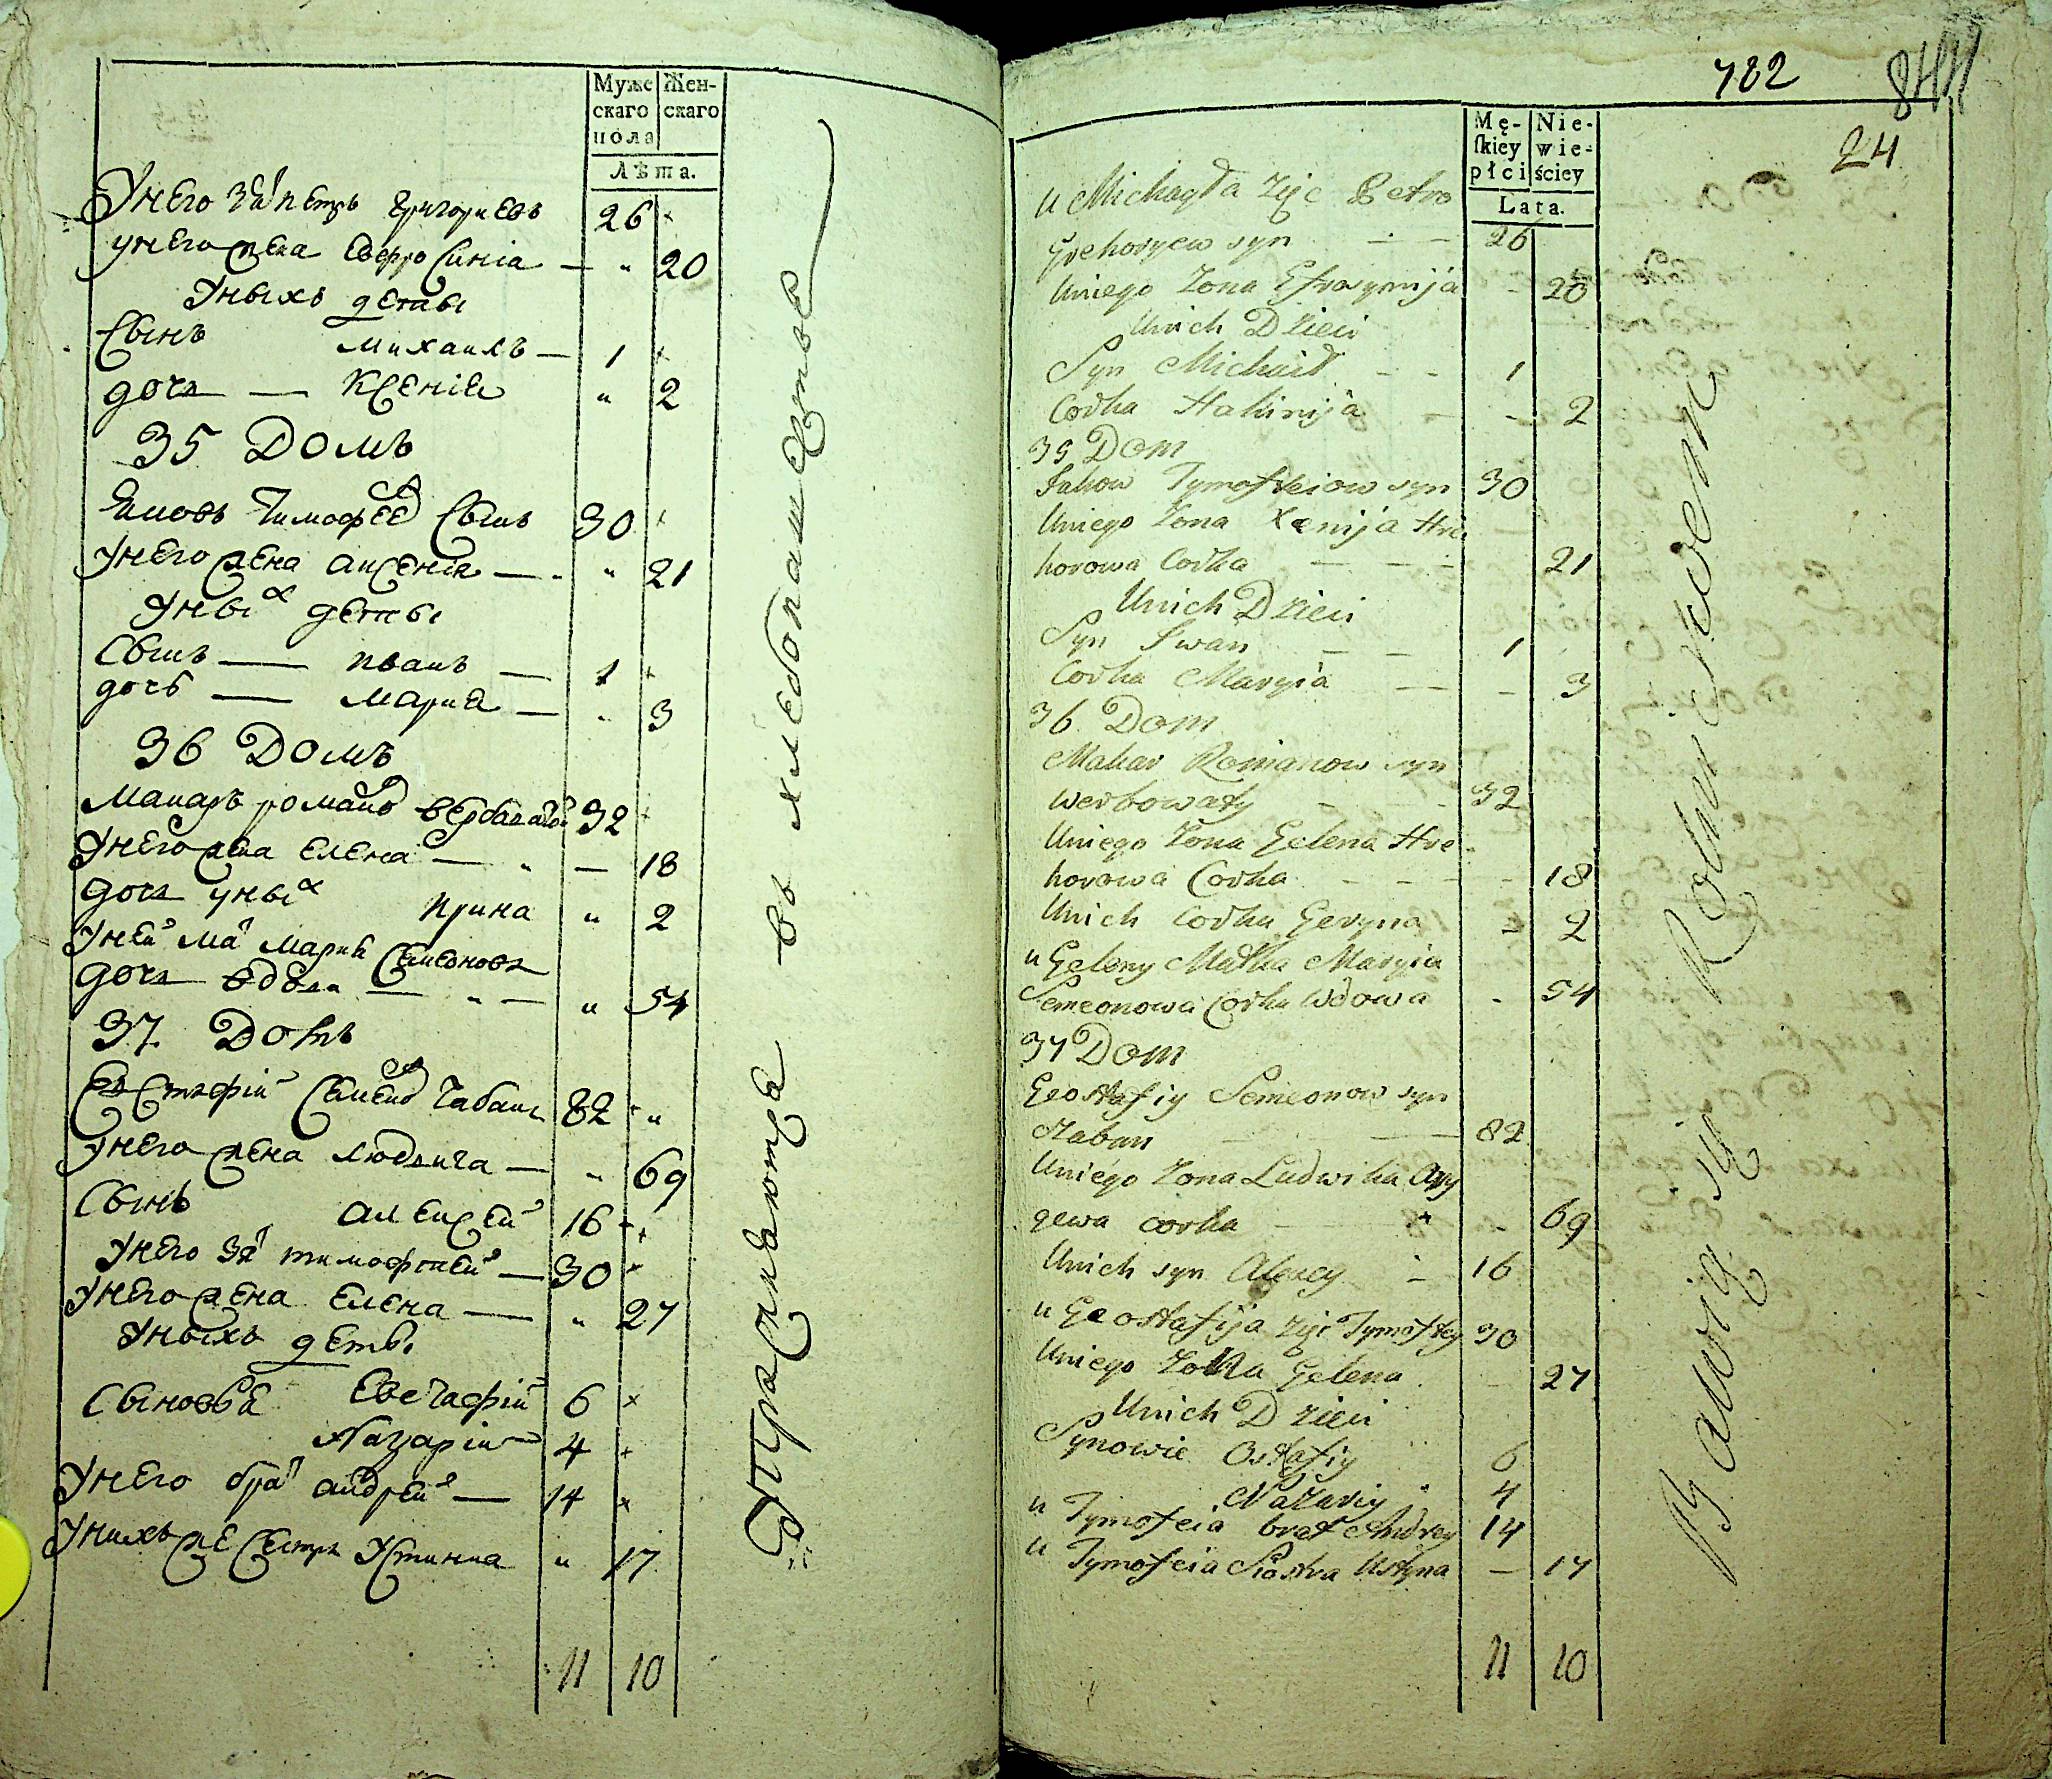 Муже
скаго
пола
Жен-
скаго
Лѣта.
Унего Зя петръ Григориевъ 26
унего жена Евфросиніа — " 20
Уныхъ деты
Сынъ михаилъ — 1
дочь — Ксеніа " 2
35 Домъ
Яковъ Тимофеев Сынъ 30
Унего жена аксеніа — " 21
Уных деты
Сынъ — иванъ — 1
дочь — Мариа — " 3
36 Домъ
Макаръ романов вербоватой 32
Унего жена Елена — " — 18
дочь уных Ирина " 2
Уней мат Мариа Семионова
дочь вдова — " — " 54
37 Домъ
Евстафій Семенов Чабанъ 82 "
унего жена людвига — " 69
Сынъ алексей 16
Унего Зят тимофтей — 30
Унего жена Елена — " 27
Уныхъ деты
Сыновья Евстафій 6
Назарій 4
Унего брат андрей — 14
Унихъ же Сестра Устинна " 17
11 10
Упражняютца въ хлебопашестве
782
844
24
Mę-
ſkiey
płci
Nie-
wie-
ściey
Lata.
u Michayła zyie Petro
Grehoryew syn — — 26
Uniego Zona Efrosymija - 20
Unich Dzieci
Syn Michaił - - 1
Corka Xsenija - - 2
35 Dom
Jakow Tymofteiow syn 30
Uniego Zona Xenija Hre
horowa Corka — — - 21
Unich Dzieci
Syn Iwan — — 1
Corka Maryia — - 3
36 Dom
Makar Romanow syn
Werbowaty - - 32
Uniego Zona Gelena Hre-
horowa Corka - - - - 18
Unich Corka Geryna - 2
u Geleny Matka Maryia
Semeonowa Corka Wdowa - 54
37 Dom
Geostafiy Semeonow syn
Czaban — — 82
Uniego Zona Ludwika
gewa corka — - 69
Unich syn Alexey — 16
u Geostafija zyie Tymoftey 30
Uniego Zona Gelena — 27
Unich Dzieci
Synowie Ostafiy 6
Nazariy 4
u Tymofeia brat Andrey 14
u Tymofeia Siostra Ustyna — 17
11 10
Bawią się Rolnictwem